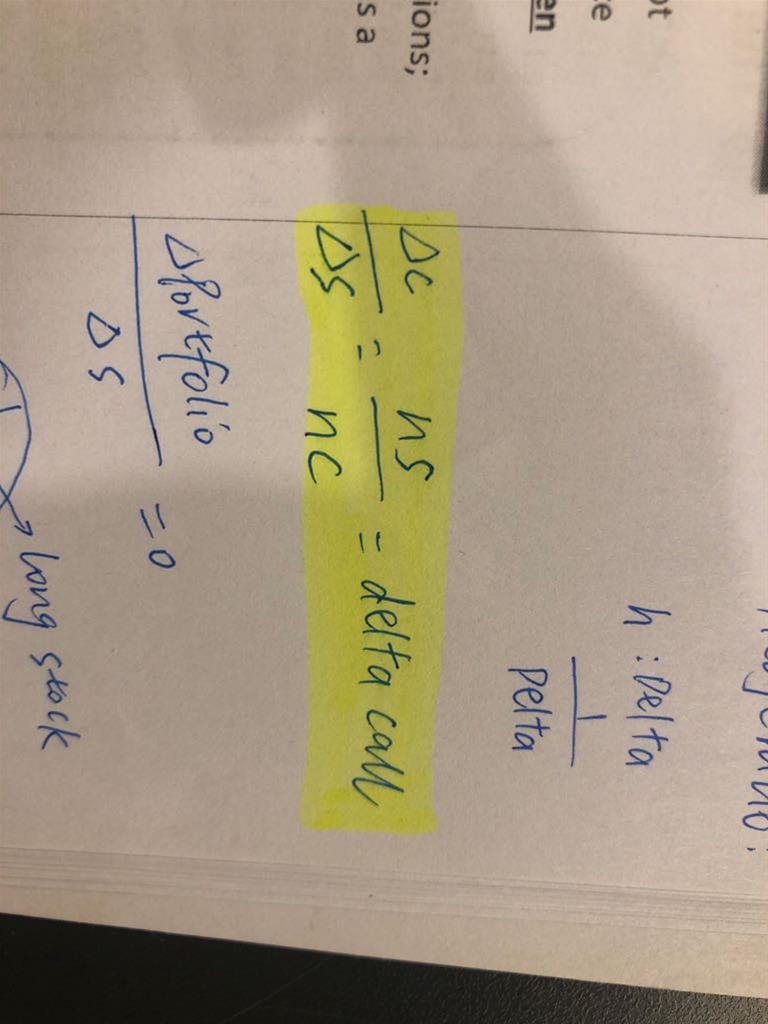 ot
e
en
ions;
s a
h : Delta
1
Delta
ΔC/ΔS = nS/nC = delta call
ΔPortfolio/ΔS = 0
long stock